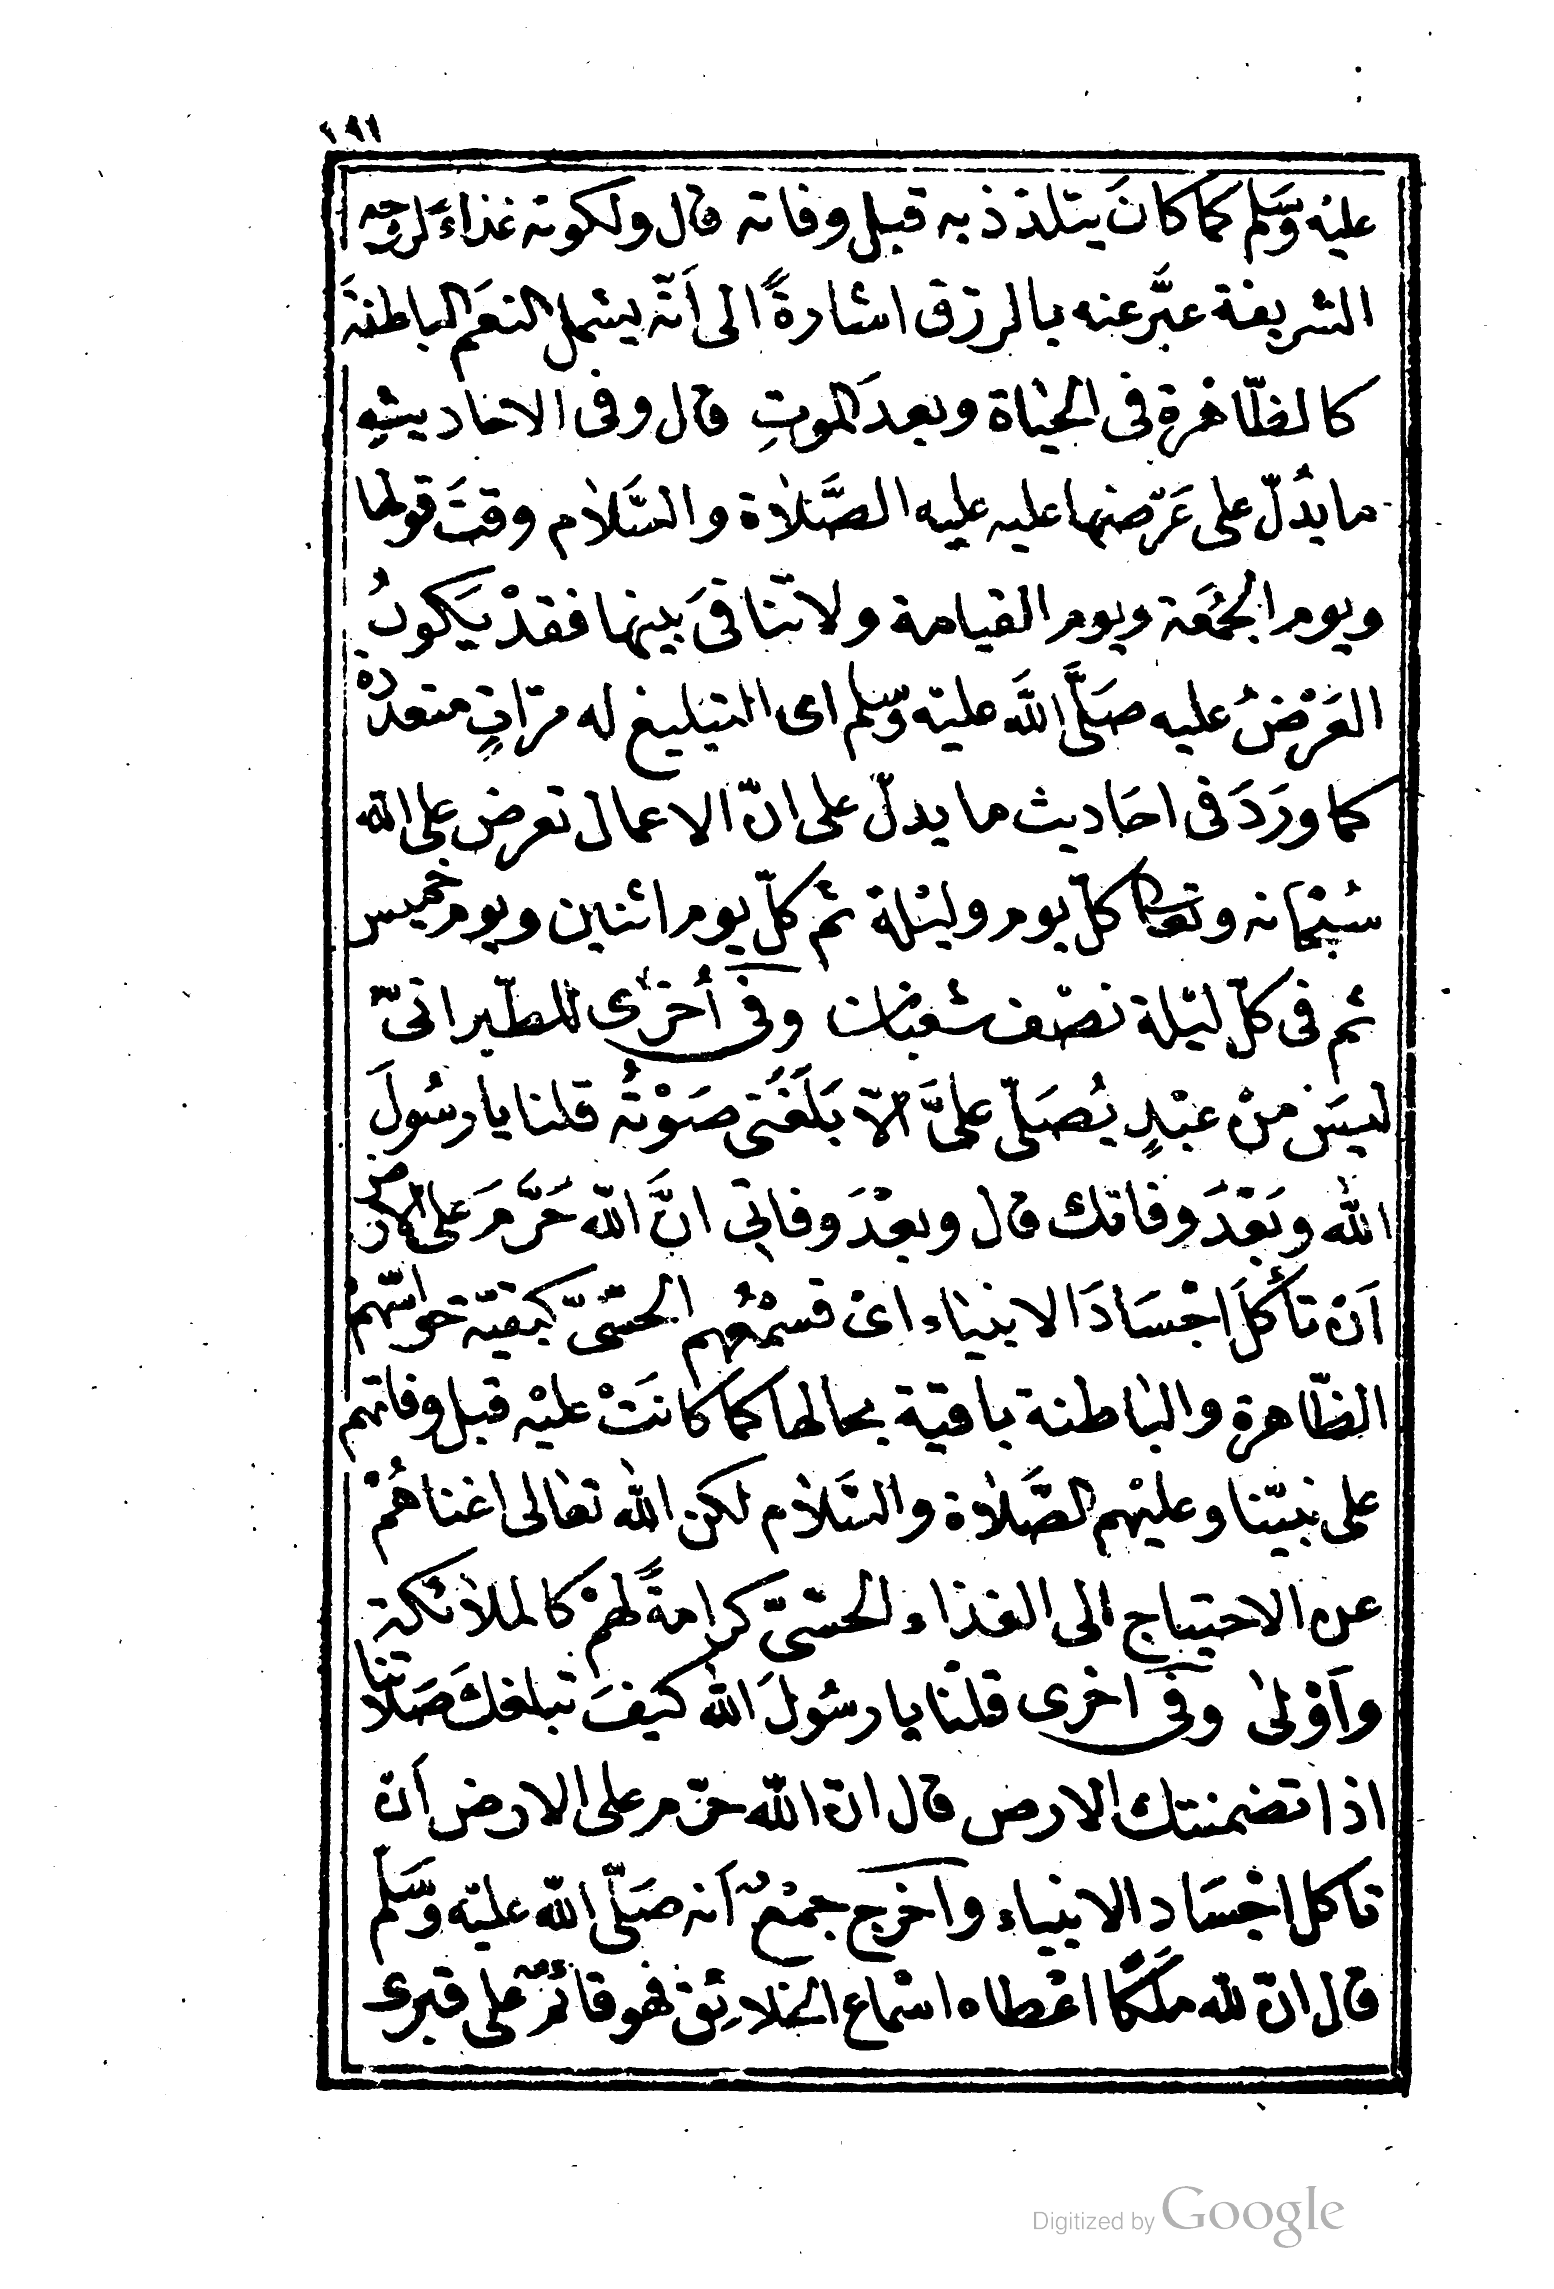 ١٩١
عليْه وَسَلم كما كانَ يتلذذ به قبل وفاته قال ولكونه غذاءً لروحه
الشريفة عبَّر عنه بالرزق اشارةً الى اَنّه يشمل النعَم الباطنةَ
كالظّاهْرةِ فى الحيٰاة وبعدَ الموتِ قال وفى الاحاديثِ
ما يدُلّ على عَرْضِها عليه عليه الصَّلاٰة والسَّلاٰم وقتَ قولها
ويوم الجُمَعَة ويوم القيامة ولا تنافىَ بينها فقدْ يَكونُ
العَرْضُ عليه صَلَّى اللَّه عليْه وسّلم اى التبليغ له مرّاتٍ متعددة
كما ورَدَ فى احَاديث ما يدلّ على انّ الاعمال تعرض على الله
سُبْحانه وتعالى كلّ يوم وليْلة ثم كلّ يوم اثنين ويوم خميس
ثم فى كلّ ليْلة نصْف شعْبان وفى اُخرٰى للطّبرانىّ
ليسَ منْ عبْدٍ يُصَلّى علىَّ الّا بَلَغَنى صَوْتُه قلنا يا رسُولَ
الله وبَعْدَ وفاتك قال وبعْدَ وفاتى انَّ اللّه حَرَّمَ على الارض
اَنْ تأكلَ اجْسَادَ الانبيٰاء اىْ فسَمْعُهم الحسّىّ كبقيّة حواسّهمْ
الظّاهرة والبٰاطنة باقية بحالها كما كانَتْ عليْه قبل وفاتهم
على نبيّنا وعليْهم الصَّلاٰة والسَّلاٰم لكن اللّٰه تعٰالى اغناهُمْ
عن الاحتياج الى الغذاء الحسّىّ كرامةً لهمْ كالملاٰئكة
واَوْلىٰ وفى اخرى قلنا يا رسُولَ اللّٰه كيْفَ تبلغكَ صَلاتنا
اذا تضمنتك الارض قال انّ اللّه حرّم على الارض اَنْ
تاكل اجْسَاد الانبياء واخرج جمْعٌ اَنه صَلّى اللّه عليْه وسَّلم
قال انّ للّه ملَكًا اعْطاه اسْماع الخلائِق فهو قائمٌ على قبرى
Digitized by Google